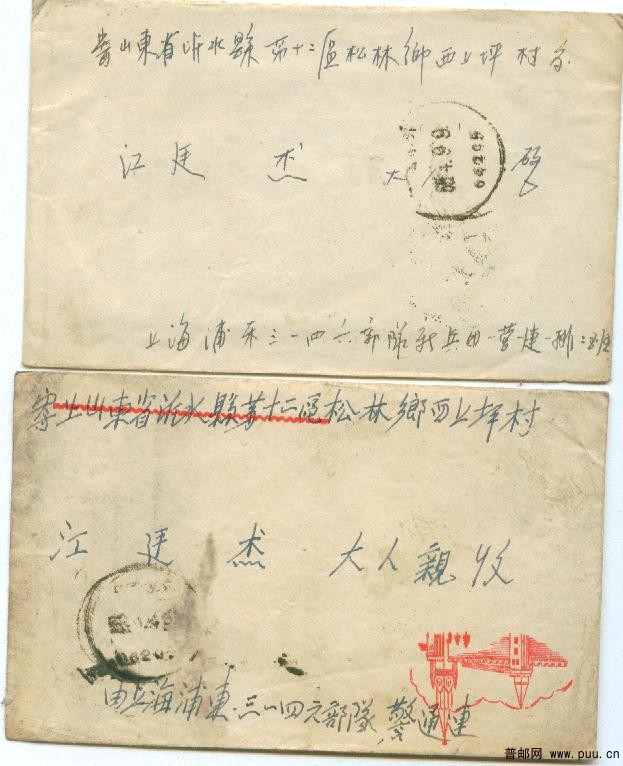 寄山东省沂水县第十二区松林鄉西上坪村交
江廷杰大人
上海浦东三一四六部隊新兵团一营連一排二班
寄上山東省沂水縣第十二區松林鄉西上坪村
江廷杰大人親收
由上海浦東三一四六部隊警通連
普邮网 www.puu.cn